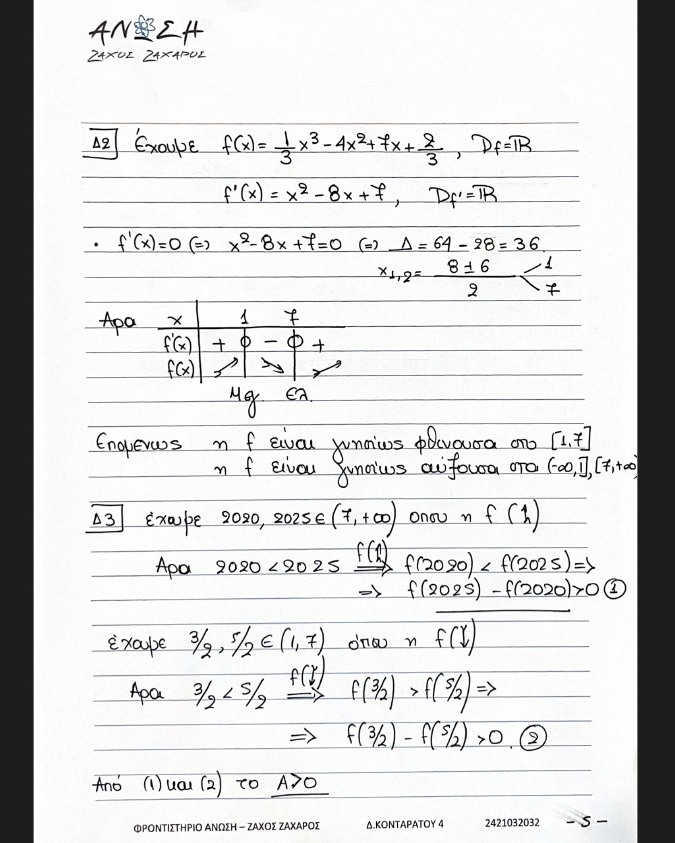 ΑΝΩΣΗ
ΖΑΧΟΣ ΖΑΧΑΡΟΣ
Δ2 Έχουμε f(x) = 1/3 x³ - 4x² + 7x + 2/3 , Df = ℝ
f'(x) = x² - 8x + 7 , Df' = ℝ
· f'(x)=0 (=) x² - 8x + 7 = 0 (=) Δ = 64 - 28 = 36.
x₁,₂ = 8 ± 6 / 2 1 7
Αρα x 1 7
f'(x) + 0 - 0 +
f(x) ↗ ↘ ↗
Μεγ. Ελ.
Επομενως η f είναι γνησίως φθινουσα στο [1,7]
η f είναι γνησίως αύξουσα στα (-∞,1],[7,+∞)
Δ3 έχουμε 2020, 2025 ∈ (7,+∞) οπου η f (↑)
Αρα 2020 < 2025 f(↑) ⟹ f(2020) < f(2025) =>
=> f(2025) - f(2020) > 0 ①
έχουμε 3/2, 5/2 ∈ (1,7) όπου η f(↓)
Αρα 3/2 < 5/2 f(↓) ⟹ f(3/2) > f(5/2) =>
=> f(3/2) - f(5/2) > 0. ②
Από (1) και (2) το Α>0
ΦΡΟΝΤΙΣΤΗΡΙΟ ΑΝΩΣΗ – ΖΑΧΟΣ ΖΑΧΑΡΟΣ Δ.ΚΟΝΤΑΡΑΤΟΥ 4 2421032032 - 5 -